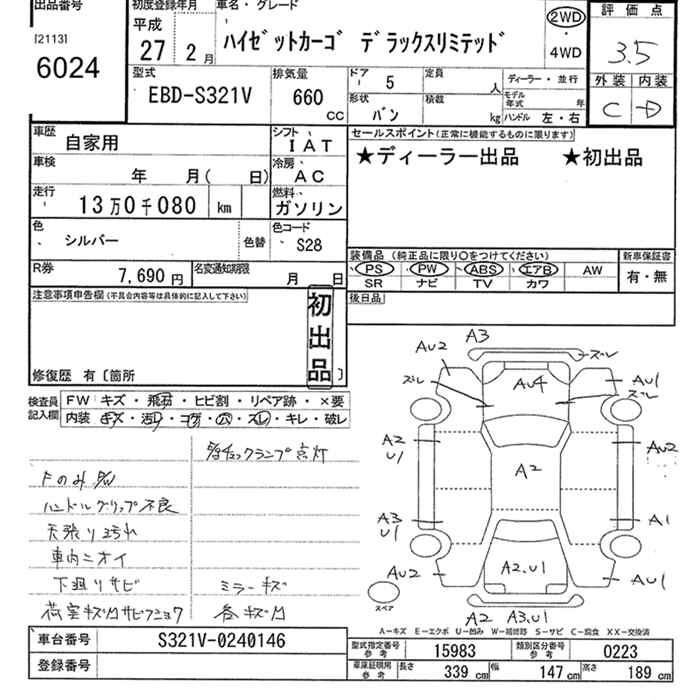 出品番号
[2113]
6024
初度登録年月
平成
27年 2月
車名・グレード
ハイゼットカーゴ デラックスリミテッド
2WD
・
4WD
評価点
3.5
外装 内装
C D
型式
EBD-S321V
排気量
660
CC
ドア
5
定員
人
形状
バン
積載
kg
ディーラー・並行
モデル年式 年
ハンドル 左・右
車歴
自家用
シフト
IAT
車検
年 月( 日)
冷房
AC
走行
13万0千080 km
燃料
ガソリン
色
シルバー
色替
色コード
S28
R券
7,690円
名変通知期限
月 日
セールスポイント(正常に機能するものに限ります)
★ディーラー出品 ★初出品
装備品(純正品に限り○をつけてください)
PS PW ABS エアB AW
SR ナビ TV カワ
新車保証書
有・無
後日品
注意事項申告欄(不具合内容等は具体的に記入して下さい)
初出品
修復歴 有〔箇所 〕
検査員記入欄
FW キズ・飛石・ヒビ割・リペア跡・×要
内装 キズ・汚レ・コゲ・穴・スレ・キレ・破レ
チェックランプ点灯
Fのみ PW
ハンドルグリップ不良
天張り汚れ
車内ニオイ
下廻りサビ ミラーキズ
荷室キズ凹サビフショク 各キズ凹
A3
AU2 ズレ
ズレ AU4 AU1
ズレ
A2
U1 A2 AU2
A3
U1 A1
AU2 A2.U1 AU1
スペア
A2 A3.U1
A-キズ E-エクボ U-凹み W-補修跡 S-サビ C-腐食 XX-交換済
車台番号
S321V-0240146
登録番号
型式指定番号
参考
15983
類別区分番号
参考
0223
車庫証明用
参考
長さ 339cm 幅 147cm 高さ 189cm